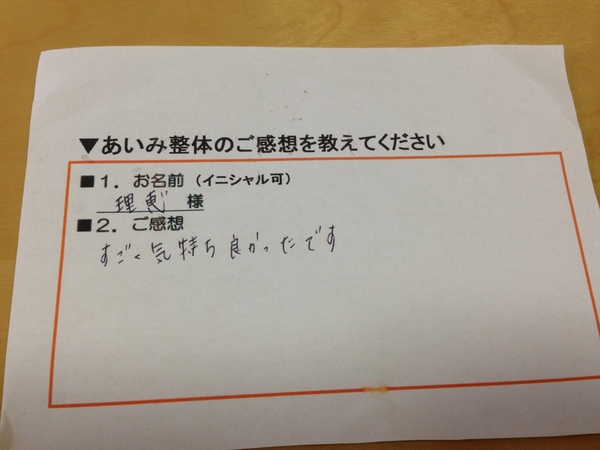 ▼あいみ整体のご感想を教えてください
■1．お名前（イニシャル可）
理恵 様
■2．ご感想
すごく気持ち良かったです